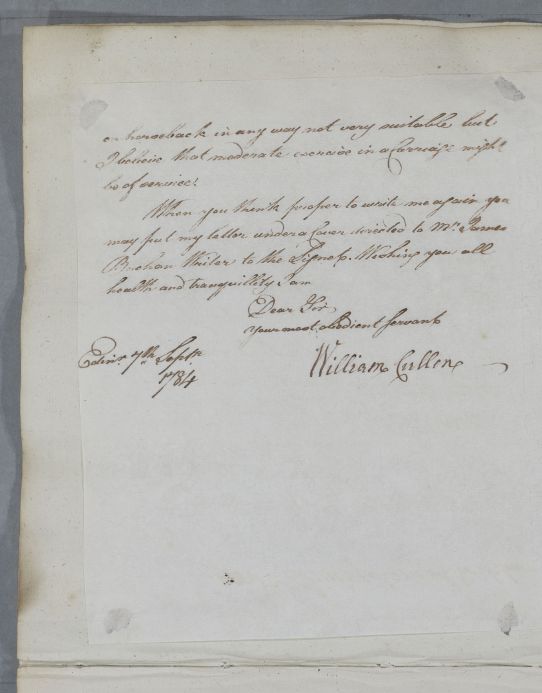 on horseback in any way not very suitable but
I believe that moderate exercise in a Carriage might
be of service.
When you think proper to write me again you
may put my letter under a Cover directed to Mr. James
Buchan Writer to the Signet. Wishing you all
health and tranquillity I am
Dear Sir
your most obedient servant
William Cullen
Edinr. 7th Septr.
1784